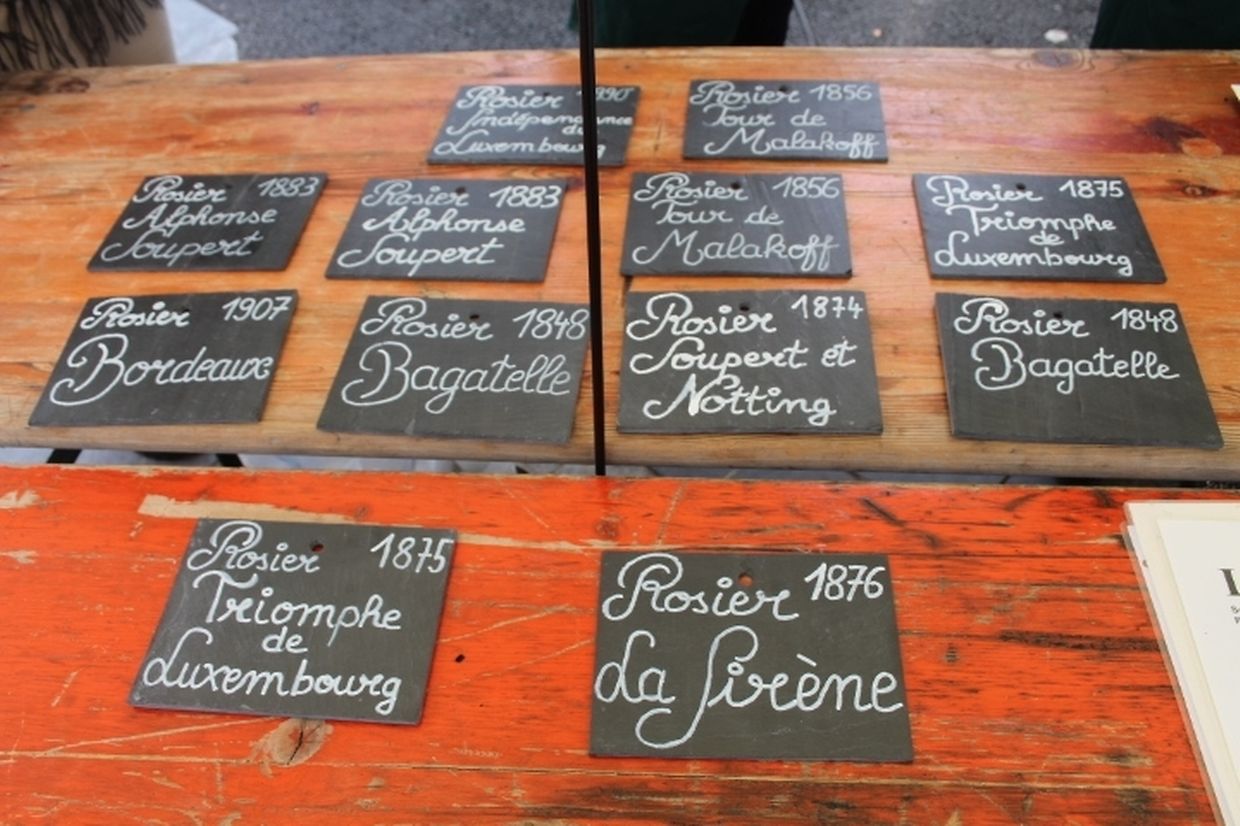 Rosier
Indépendance
du
Luxembourg
Rosier 1856
Tour de
Malakoff
Rosier 1883
Alphonse
Soupert
Rosier 1883
Alphonse
Soupert
Rosier 1856
Tour de
Malakoff
Rosier 1875
Triomphe
de
Luxembourg
Rosier 1907
Bordeaux
Rosier 1848
Bagatelle
Rosier 1874
Soupert et
Notting
Rosier 1848
Bagatelle
Rosier 1875
Triomphe
de
Luxembourg
Rosier 1876
La Sirène